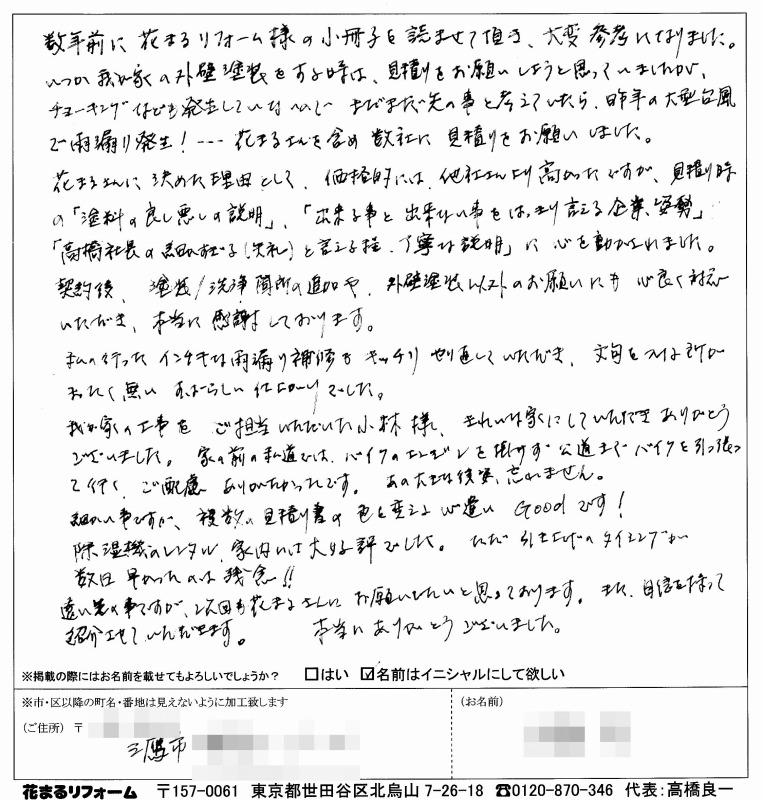 数年前に花まるリフォーム様の小冊子を読ませて頂き、大変参考になりました。
いつか我が家の外壁塗装をする時は、見積りをお願いしようと思っていましたが、
チョーキングなども発生していないので まだまだ先の事と考えていたら、昨年の大型台風
で雨漏り発生！--- 花まるさんを含め数社に見積りをお願いしました。
花まるさんに決めた理由として、価格的には他社さんより高かったですが、見積り時
の「塗料の良し悪しの説明」、「出来る事と出来ない事をはっきり言える企業姿勢」
「高橋社長の(失礼)と言える程、丁寧な説明」に心を動かされました。
契約後、塗装/洗浄箇所の追加や、外壁塗装以外のお願いにも心良く対応
いただき、本当に感謝しております。
私の行ったインチキな雨漏り補修もキッチリやり直していただき、文句をつける所が
まったく無いすばらしい仕上がりでした。
我が家の工事をご担当いただいた小林様、きれいな家にしていただきありがとう
ございました。家の前の私道では、バイクのエンジンを掛けず公道までバイクを引っ張っ
て行く、ご配慮ありがたかったです。あの大きな後姿、忘れません。
細かい事ですが、複数の見積り書の色を変える心遣い Goodです！
除湿機のレンタル、家内には大好評でした。ただ引き上げのタイミングが
数日早かったのは残念!!
遠い先の事ですが、次回も花まるさんにお願いしたいと思っております。また、自信を持って
紹介させていただきます。 本当にありがとうございました。
※掲載の際にはお名前を載せてもよろしいでしょうか？ □はい ☑名前はイニシャルにして欲しい
※市・区以降の町名・番地は見えないように加工致します
(お名前)
(ご住所) 〒
三鷹市
花まるリフォーム 〒157-0061 東京都世田谷区北烏山 7-26-18 ☎0120-870-346 代表：高橋良一